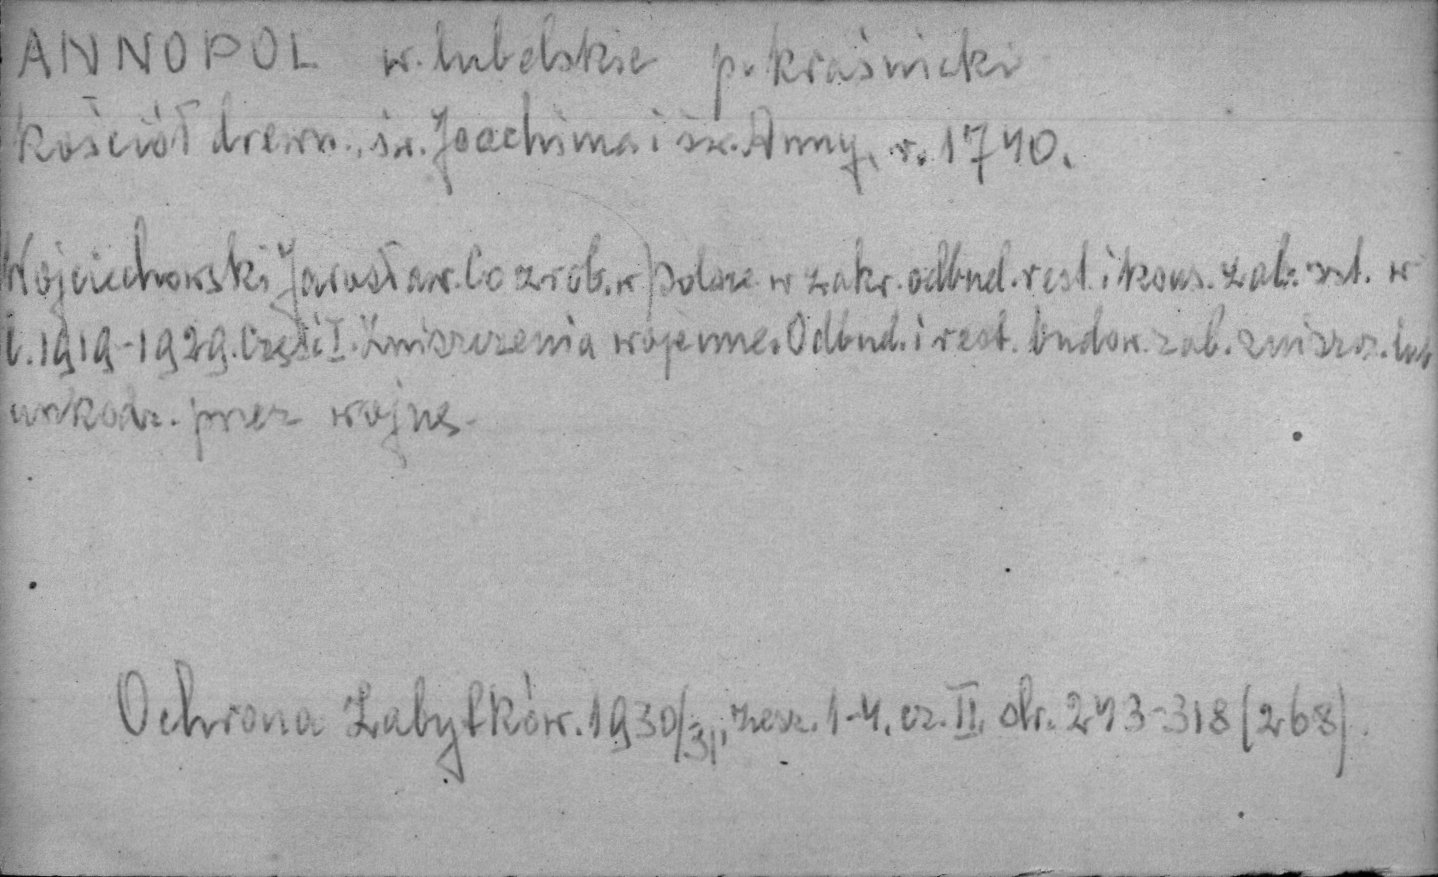 ANNOPOL w. lubelskie p. kraśnicki
Kościół drewn., św. Joachima i św. Anny, r. 1740.
Wojciechowski Jarosław. Co zrob. w Polsce w zakr. odbud. rest. i kons. zab. szt. w
l. 1919-1929. Część I. Zniszczenia wojenne. Odbud. i rest. budow. zab. zniszcz. lub
uszkodz. przez wojnę.
Ochrona Zabytków. 1930/31, zesz. 1-4, cz. II, str. 243-318 (268).